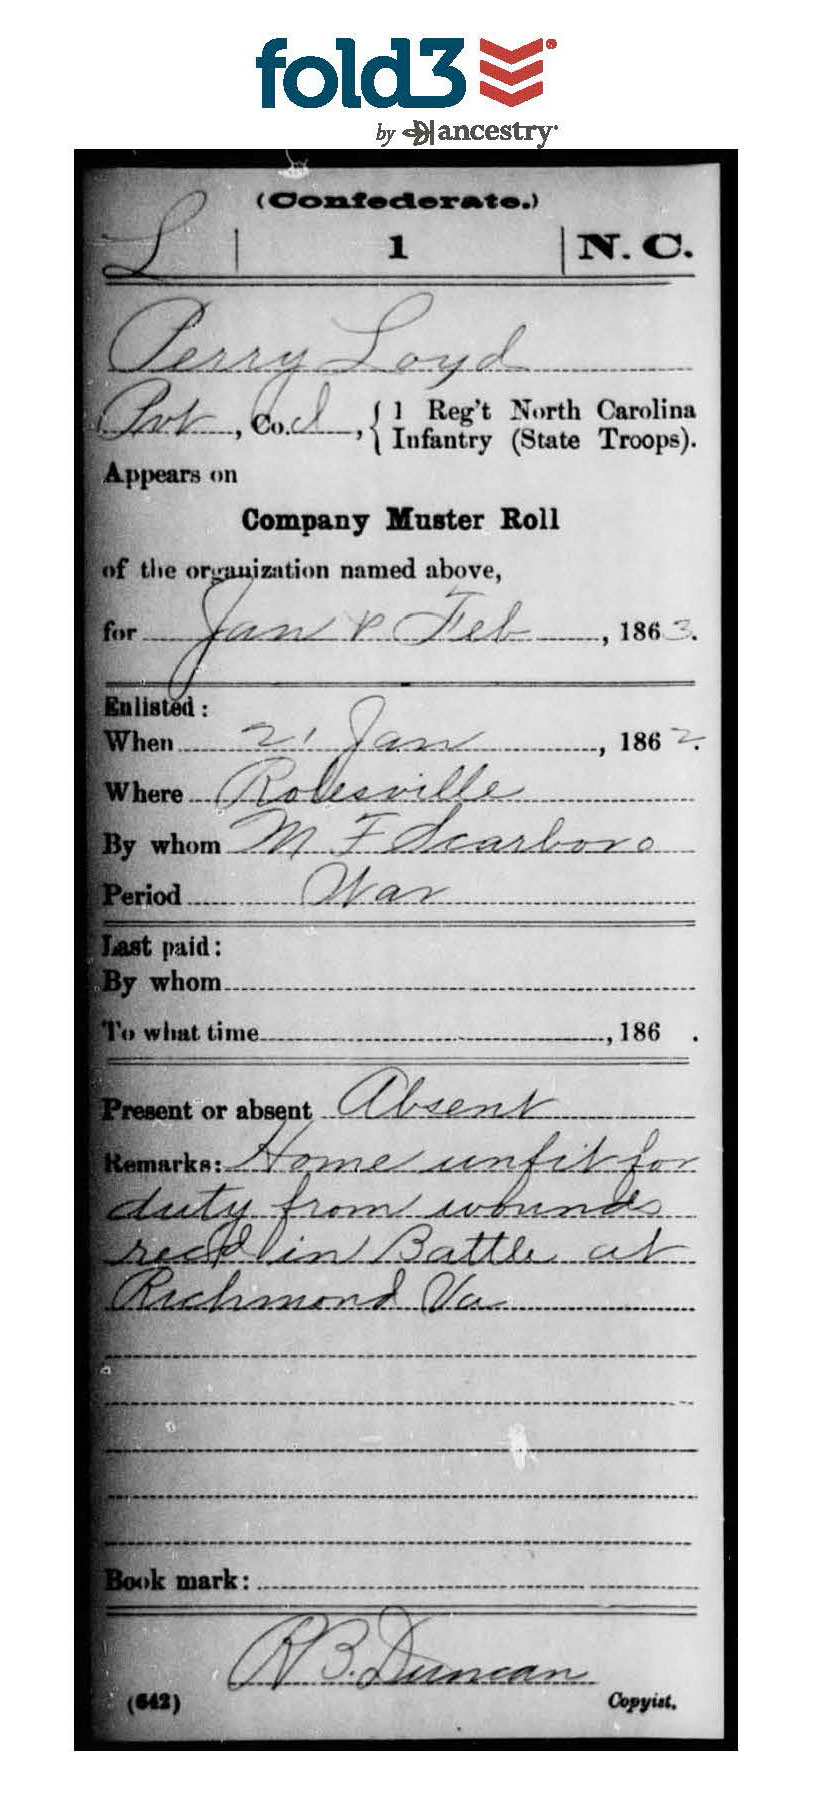 fold3
by ancestry
(Confederate.)
L | 1 | N. C.
Perry Loyd
Pvt, Co. I, { 1 Reg't North Carolina
Infantry (State Troops).
Appears on
Company Muster Roll
of the organization named above,
for Jan & Feb, 1863.
Enlisted:
When 21 Jan, 1862.
Where Rolesville
By whom M F Scarboro
Period War
Last paid:
By whom
To what time, 186 .
Present or absent Absent
Remarks: Home unfit for
duty from wounds
recd in Battle at
Richmond Va
Book mark:
R B. Duncan
(642) Copyist.